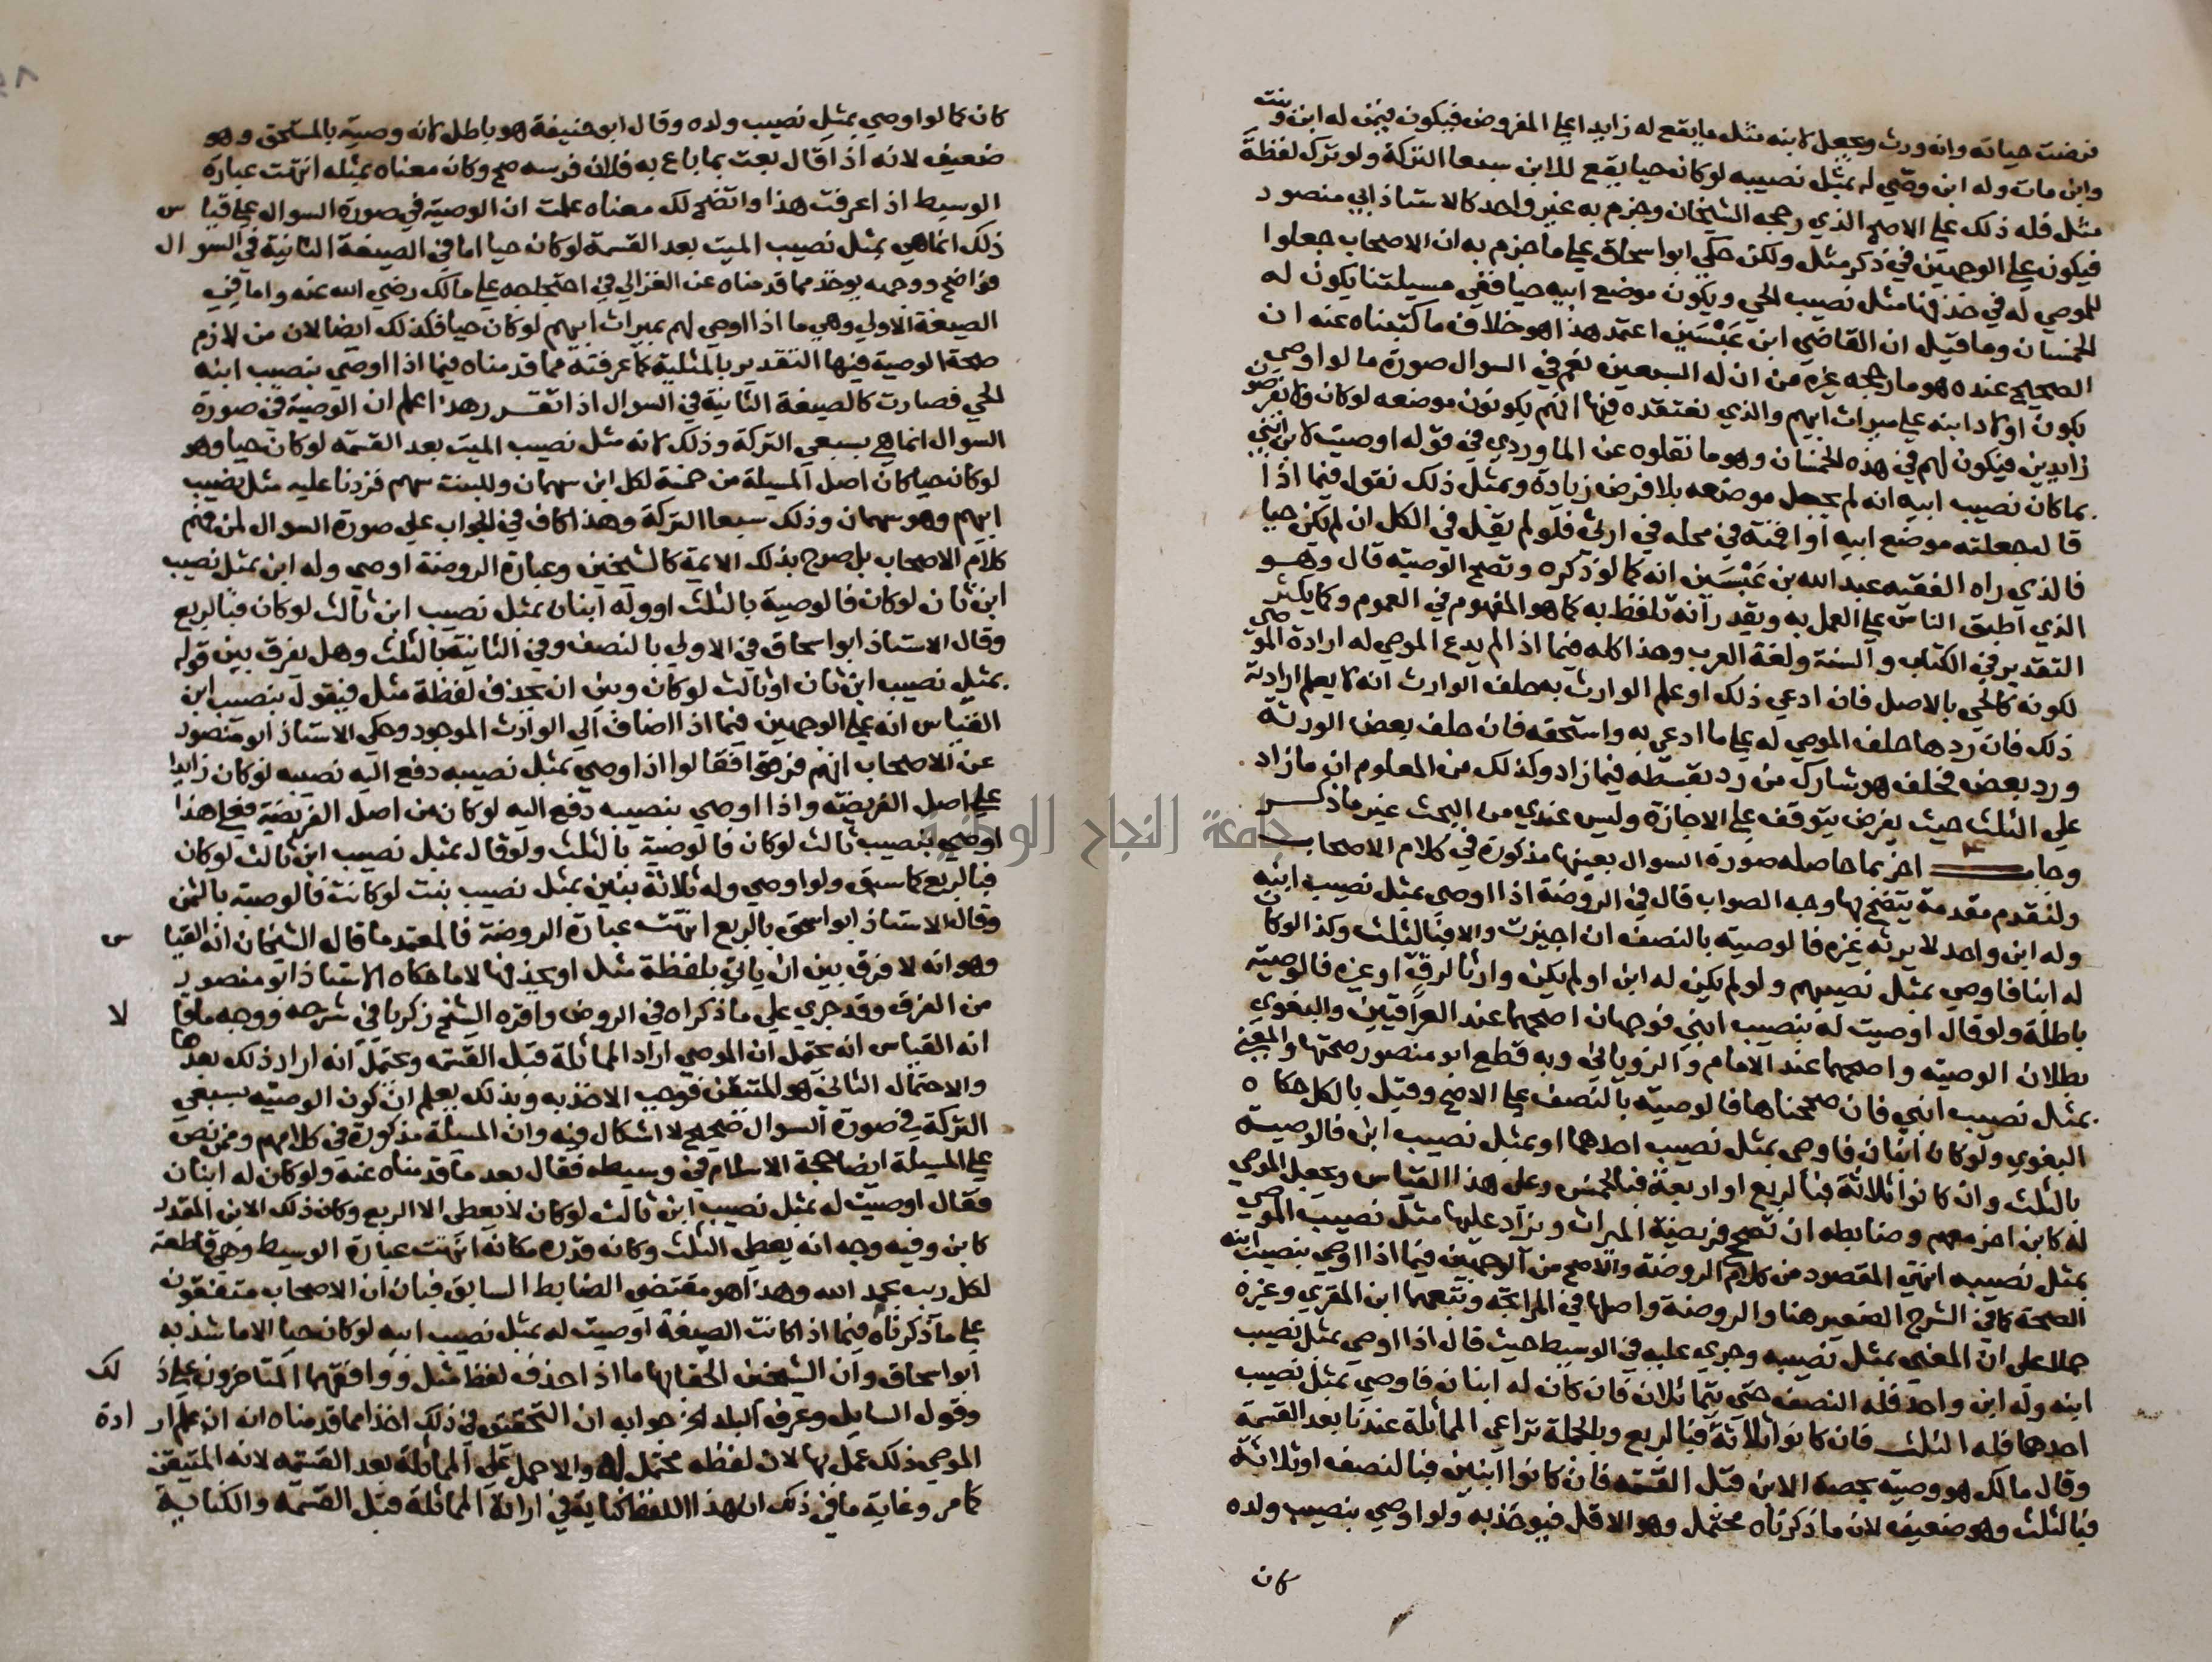 فرضت حياته وانه ورث ويجعل لابنه مثل ما يقع له زايدا علي المفروض فيكون فيمن له ابن وبنت
وابن مات وله ابن وصّي له بمثل نصيبه لوكان حيا يقع للابن سبعا التركة ولو ترك لفظة
مثل فله ذلك علي الاصح الذي رجحه الشيخان وجزم به غير واحد كالاستاذ ابي منصور
فيكون علي الوجهين في ذكر مثل ولكن حكي ابو اسحاق علي ما جزم به ان الاصحاب جعلوا
للموصي له في حذفها مثل نصيب الحي ويكون موضع ابيه حيا ففي مسيلتنا يكون له
الخمسان وما قيل ان القاضي ابن عَبْسَين اعتمد هذا هو خلاف ما كتبناه عنه ان
الصحيح عنده هو ما رجحه غيره من ان له السبعين نعم في السوال صورة ما لو اوصي
بكون اولاد ابنه علي ميراث ابيهم والذي نعتقده فيها انهم يكونون موضعه لوكان ولا نفرضهم
زايدين فيكون لهم في هذه الخمسان وهو ما نقلوه عن الماوردي في قوله اوصيت لابن ابني
بما كان نصيب ابيه انه لم يجعل موضعه بلا فرض زيادة وبمثل ذلك نقول فيما اذا
قال جعلته موضع ابيه او اقمته في محله في ارثي فلو لم يقل في الكل ان لم يكن حيا
فالذي راه الفقيه عبد الله بن عَبْسَين انه كما لو ذكره وتصح الوصية قال وهو
الذي اطبق الناس علي العمل به ويقدر انه تلفظ به كما هو المفهوم في العموم وكما يكثر
التقدير في الكتاب والسنة ولغة العرب وهذا كله فيما اذا لم يدع الموصي له ارادة الموصي
لكونه كالحي بالاصل فان ادعي ذلك او علم الوارث به حلف الوارث انه لا يعلم ارادته
ذلك فان ردها حلف الموصي له علي ما ادعي به واستحقه فان حلف بعض الورثة
ورد بعض فحلف هو شارك من رد بقسطه فيما زاد وكذلك من المعلوم ان ما زاد
علي الثلث حيث يفرض يتوقف علي الاجازة وليس عندي من البحث غير ما ذكر
وجاب اخر بما حاصله صورة السوال بعينها مذكورة في كلام الاصحاب
ولنقدم مقدمة يتضح بها وجه الصواب قال في الروضة اذا اوصي بمثل نصيب ابنه
وله ابن واحد لا يرثه غيره فالوصية بالنصف ان اجيزت والا فبالثلث وكذا لو كان
له ابنا فاوصي بمثل نصيبهم ولو لم يكن له ابن او لم يكن وارثا لرق او غيره فالوصية
باطلة ولو قال اوصيت له بنصيب ابني فوجهان اصحهما عند العراقيين والبغوي
بطلان الوصية واصحهما عند الامام والروياني وبه قطع ابو منصور صحتها والمعني
بمثل نصيب ابني فان صححناها فالوصية بالنصف علي الاصح وقيل بالكل حكاه
البغوي ولو كان ابنان فاوصي بمثل نصيب احدهما او بمثل نصيب ابن فالوصية
بالثلث وان كانوا ثلاثة فبالربع او اربعة فبالخمس وعلي هذا القياس ويجعل الموصي
له كابن اخر معهم وضابطه ان تصح فريضة الميراث ويزاد عليها مثل نصيب الموصي
بمثل نصيبه انتهي المقصود من كلام الروضة والاصح من الوجهين فيما اذا اوصي بنصيب ابنه
الصحة كما في الشرح الصغير هنا والروضة واصلها في المرابحة وتبعهما ابن المقري وغيره
حملا علي ان المعني بمثل نصيبه وجري عليه في الوسيط حيث قال اذا اوصي بمثل نصيب
ابنه وله ابن واحد فله النصف حتي يتماثلان فان كان له ابنان فاوصي بمثل نصيب
احدهما فله الثلث فان كانوا ثلاثة فبالربع وبالجملة تراعي المماثلة عندنا بعد القسمة
وقال مالك هو وصية بحصة الابن قبل القسمة فان كانوا ابنين فبالنصف او ثلاثة
فبالثلث وهو ضعيف لان ما ذكرناه محتمل وهو الاقل فيوخذ به ولو اوصي بنصيب ولده
كان
كان كما لو اوصي بمثل نصيب ولده وقال ابو حنيفة هو باطل لانه وصية بالمستحق وهو
ضعيف لانه اذا قال بعت بما باع به فلان فرسه صح وكان معناه بمثله انتهت عبارة
الوسيط اذا عرفت هذا واتضح لك معناه علمت ان الوصية في صورة السوال علي قياس
ذلك انما هي بمثل نصيب الميت بعد القسمة لوكان حيا اما في الصيغة الثانية في السوال
فواضح ووجهه يوخذ مما قدمناه عن الغزالي في احتجاجه علي مالك رضي الله عنه واما في
الصيغة الاولي وهي ما اذا اوصي لهم بميراث ابيهم لوكان حيا فكذلك ايضا لان من لازم
صحة الوصية فيها التقدير بالمثلية كما عرفته مما قدمناه فيما اذا اوصي بنصيب ابنه
الحي فصارت كالصيغة الثانية في السوال اذا تقرر هذا اعلم ان الوصية في صورة
السوال انما هي بسبعي التركة وذلك لانه مثل نصيب الميت بعد القسمة لوكان حيا وهو
لوكان حيا كان اصل المسيلة من خمسة لكل ابن سهمان وللبنت سهم فزدنا عليه مثل نصيب
ابيهم وهو سهمان وذلك سبعا التركة وهذا كاف في الجواب علي صورة السوال لمن فهم
كلام الاصحاب بل صرح بذلك الايمة كالشيخين وعبارة الروضة اوصي وله ابن بمثل نصيب
ابن ثان لوكان فالوصية بالثلث او وله ابنان بمثل نصيب ابن ثالث لوكان فبالربع
وقال الاستاذ ابو اسحاق في الاولي بالنصف وفي الثانية بالثلث وهل يفرق بين قوله
بمثل نصيب ابن ثان او ثالث لوكان وبين ان يحذف لفظة مثل فيقول بنصيب ابن
القياس انه علي الوجهين فيما اذا اضاف الي الوارث الموجود وحكي الاستاذ ابو منصور
عن الاصحاب انهم فرقوا فقالوا اذا اوصي بمثل نصيبه دفع اليه نصيبه لوكان زايدا
علي اصل الفريضة واذا اوصي بنصيبه دفع اليه لوكان من اصل الفريضة فعلي هذا
اوصي بنصيب ثالث لوكان فالوصية بالثلث ولو قال بمثل نصيب ابن ثالث لوكان
فبالربع كما سبق ولو اوصي وله ثلاثة بنين بمثل نصيب بنت لوكانت فالوصية بالثمن
وقال الاستاذ ابو اسحق بالربع انتهت عبارة الروضة فالمعتمد ما قال الشيخان انه القياس
وهو انه لا فرق بين ان ياتي بلفظة مثل او يحذفها لا ما حكاه الاستاذ ابو منصور
من الفرق وقد جري علي ما ذكراه في الروض واقره الشيخ زكريا في شرحه ووجه ما قالا
انه القياس انه يحتمل ان الموصي اراد المماثلة قبل القسمة ويحتمل انه اراد ذلك بعدها
والاحتمال الثاني هو المتيقن فوجب الاخذ به وبذلك يعلم ان كون الوصية بسبعي
التركة في صورة السوال صحيح لا اشكال فيه وان المسيلة مذكورة في كلامهم وممن نص
علي المسيلة ايضا حجة الاسلام في وسيطه فقال بعد ما قدمناه عنه ولو كان له ابنان
فقال اوصيت له بمثل نصيب ابن ثالث لوكان لا يعطي الا الربع وكان ذلك الابن المقدر
كاين وفيه وجه انه يعطي الثلث وكانه قدره مكانه انتهت عبارة الوسيط وهي قاطعة
لكل ريب بحمد الله وهذا هو مقتضي الضابط السابق فبان ان الاصحاب متفقون
علي ما ذكرناه فيما اذا كانت الصيغة اوصيت له بمثل نصيب ابيه لوكان حيا الا ما شذ به
ابو اسحاق وان الشيخين الحقا بها ما اذا حذف لفظ مثل ووافقهما المتاخرون علي ذلك
وقول السايل وعرف البلد الخ جوابه ان التحقيق في ذلك اخذا مما قدمناه انه ان علم ارادة
الموصي ذلك عمل بها لان لفظه محتمل له والا حمل علي المماثلة بعد القسمة لانه المتيقن
كما مر وغاية ما في ذلك ان هذا اللفظ كناية في ارادة المماثلة قبل القسمة والكناية
جامعة النجاح الوطنية